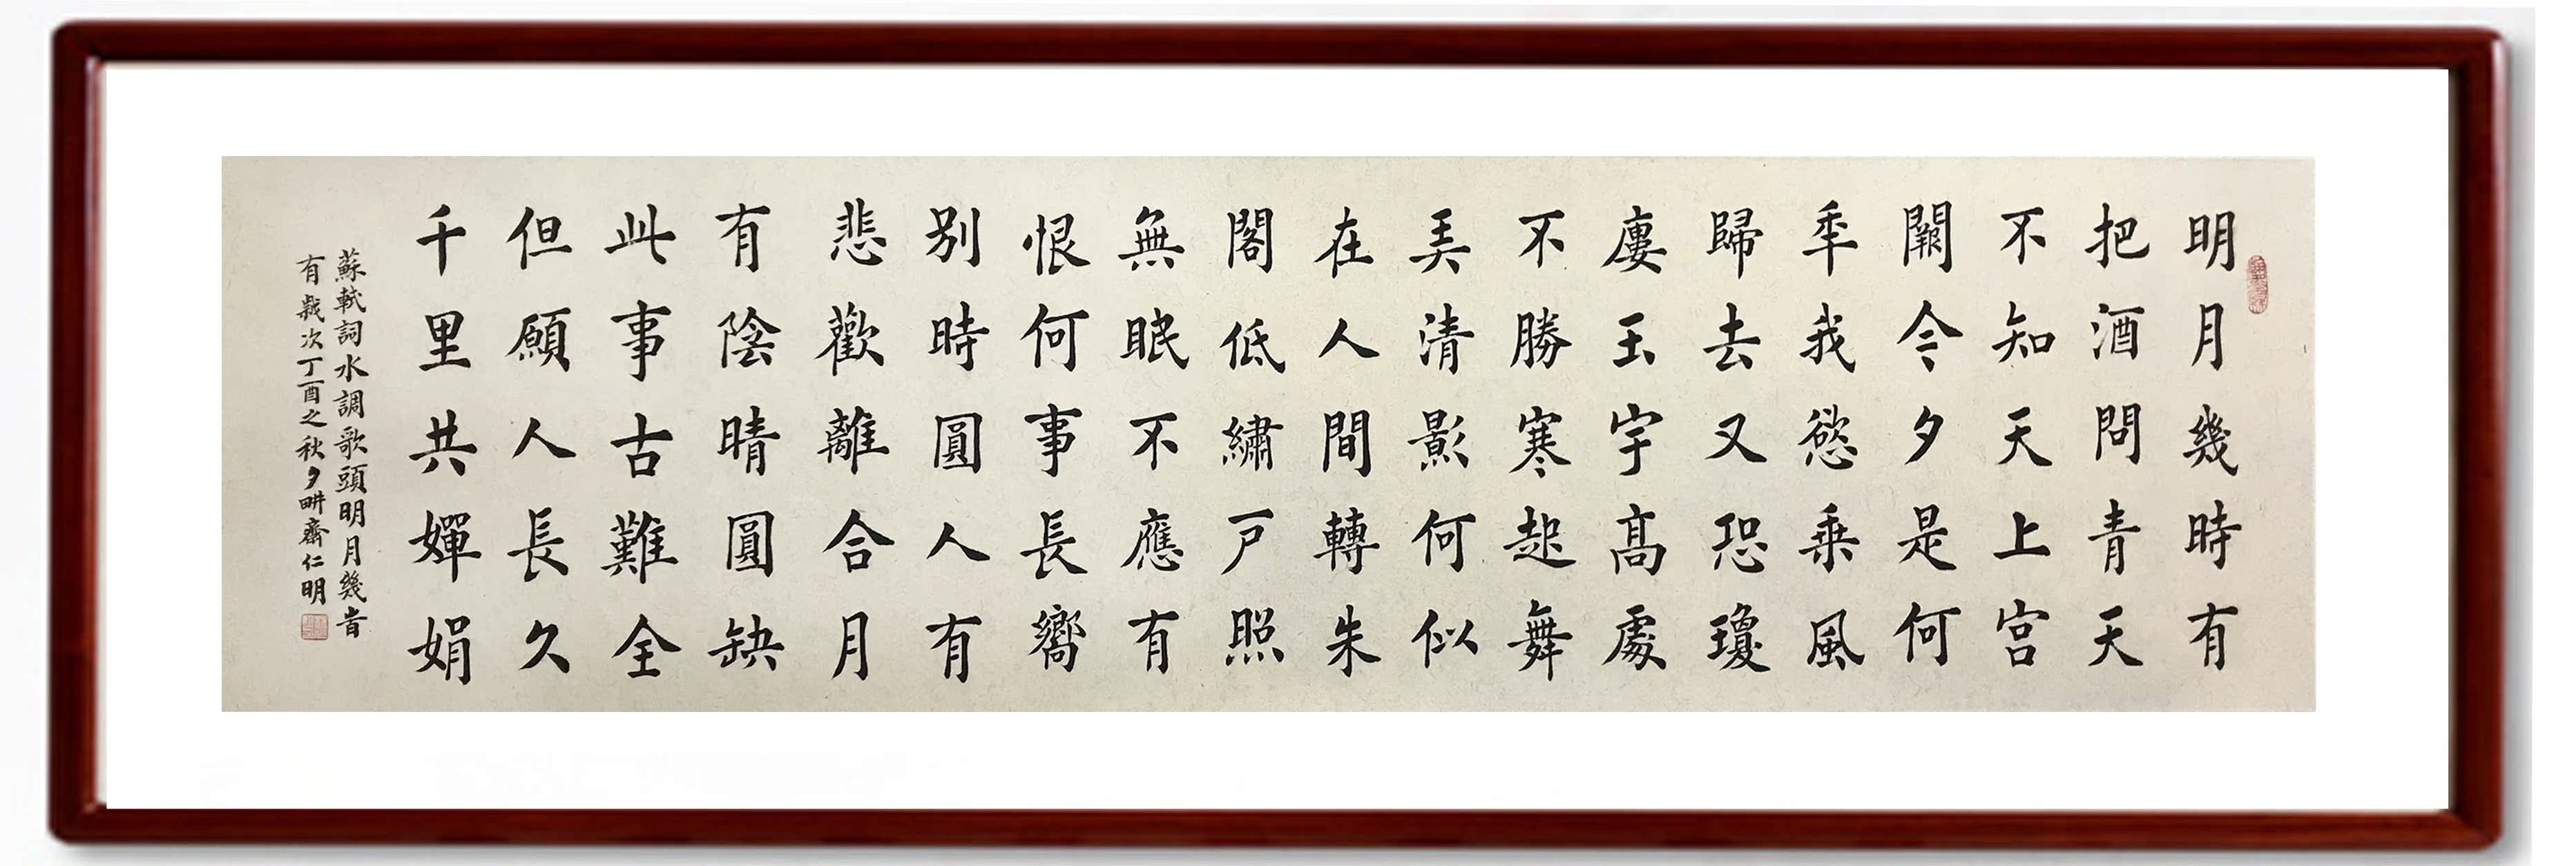 明月幾時有
把酒問青天
不知天上宫
闕今夕是何
秊我慾乗風
歸去又恐瓊
廔玉宇髙處
不勝寒起舞
弄清影何似
在人間轉朱
閣低繡戶照
無眠不應有
恨何事長嚮
别時圓人有
悲歡離合月
有陰晴圓缺
此事古難全
但願人長久
千里共嬋娟
蘇軾詞水調歌頭明月幾旹
有歲次丁酉之秋夕畊齋仁明